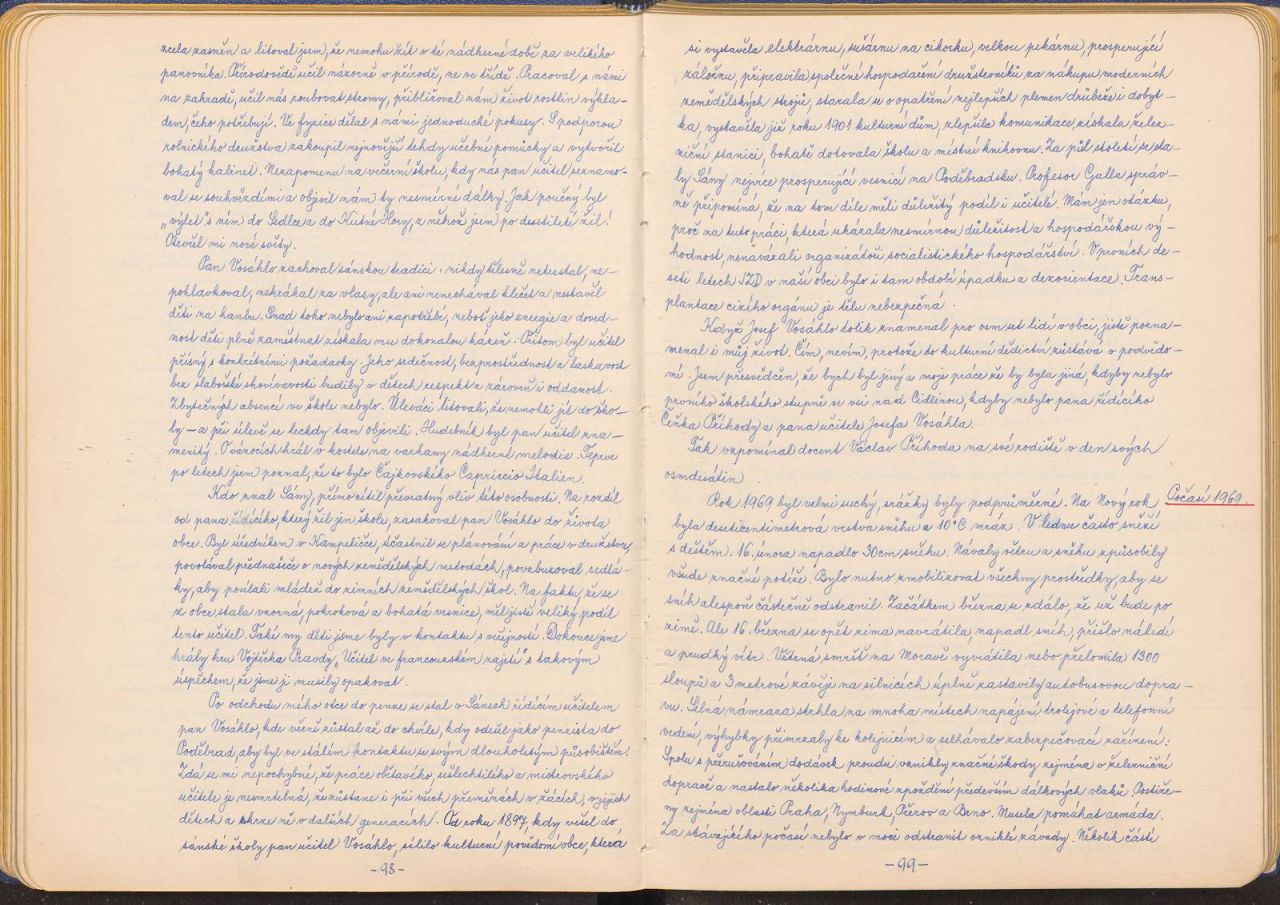 zcela zasněn a litoval jsem, že nemohu žít v té nádherné době za velikého
panovníka. Přírodovědě učil názorně v přírodě, ne ve třídě. Pracoval s námi
na zahradě, učil nás roubovat stromy, přibližoval nám život rostlin výkla-
dem, čeho potřebují. Ve fyzice dělal s námi jednoduché pokusy. S podporou
rolnického družstva zakoupil nejnovější tehdy učebné pomůcky a vytvořil
bohatý kabinet. Nezapomenu na večerní školu, kdy nás pan učitel seznamo-
val se souhvězdími a objevil nám ty nesmírné dálky. Jak poučný byl
„výlet" s ním do Sedlce a do Kutné Hory, z něhož jsem po desetiletí žil!
Otevřel mi nové světy.
Pan Vosáhlo zachoval sánskou tradici: nikdy tělesně netrestal, ne-
pohlavkoval, nezkrákal za vlasy, ale ani nenechával klečet a nestavěl
děti na hanbu. Snad toho nebylo ani zapotřebí, neboť jeho energie a doved-
nost děti plně zaměstnat získala mu dokonalou kázeň. Přitom byl učitel
přísný s konkrétními požadavky. Jeho srdečnost, bezprostřednost a laskavost
bez slabošské shovívavosti budily v dětech respekt a zároveň i oddanost.
Zbytečných absencí ve škole nebylo. Úleváci litovali, že nemohli jít do ško-
ly – a při úlevě se leckdy tam objevili. Hudebník byl pan učitel zna-
menitý. O vánocích hrál v kostele na varhany nádherné melodie. Teprve
po letech jsem poznal, že to bylo Čajkovského Capriccio Italien.
Kdo znal Sány, přímo cítil převratný vliv této osobnosti. Na rozdíl
od pana řídícího, který žil jen škole, zasahoval pan Vosáhlo do života
obce. Byl úředníkem v Kampeličce, účastnil se plánování a práce v družstvu,
povolával přednašeče o nových zemědělských metodách, povzbuzoval sedlá-
ky, aby posílali mládež do zimních zemědělských škol. Na faktu, že se
z obce stala vzorná, pokroková a bohatá vesnice, měl jistě veliký podíl
tento učitel. Také my děti jsme byly v kontaktu s veřejností. Dokonce jsme
hrály hru Vojtěcha Pravdy „Učitel ve francouzském zajetí" s takovým
úspěchem, že jsme ji musily opakovat.
Po odchodu mého otce do penze se stal v Sánech řídícím učitelem
pan Vosáhlo, kde věrně zůstal až do chvíle, kdy odešel jako penzista do
Poděbrad, aby byl ve stálém kontaktu se svým dlouholetým působištěm.
Zdá se mi nepochybné, že práce obětavého, ušlechtilého a mistrovského
učitele je nesmrtelná, že zůstane i při všech přeměnách v žácích, v jejich
dětech a skrze ně v dalších generacích. Od roku 1897, kdy vešel do
sánské školy pan učitel Vosáhlo, sílilo kulturní povědomí obce, která
-98-
si vystavěla elektrárnu, sušárnu na cikorku, velkou pekárnu, prosperující
záložnu, připravila společné hospodaření družstevníků za nákupu moderních
zemědělských strojů, starala se o opatření nejlepších plemen drůbeže i dobyt-
ka, vystavěla již roku 1901 kulturní dům, zlepšila komunikace, získala želez-
niční stanici, bohatě dotovala školu a místní knihovnu. Za půl století se sta-
ly Sány nejvíce prosperující vesnicí na Poděbradsku. Profesor Galla správ-
ně připomíná, že na tom díle měli důležitý podíl i učitelé. Mám jen otázku,
proč na tuto práci, která ukázala nesmírnou důležitost a hospodářskou vý-
hodnost, nenavázali organizátoři socialistického hospodářství. V prvních de-
seti letech JZD v naší obci bylo i tam období úpadku a dezorientace. Trans-
plantace cizího orgánu je tělu nebezpečná.
Když Josef Vosáhlo tolik znamenal pro osm set lidí v obci, jistě pozna-
menal i můj život. Čím, nevím, protože to kulturní dědictví zůstává v podvědo-
mí. Jsem přesvědčen, že bych byl jiný a moje práce že by byla jiná, kdyby nebylo
prvního školského stupně ve vsi nad Cidlinou, kdyby nebylo pana řídícího
Čeňka Příhody a pana učitele Josefa Vosáhla.
Tak vzpomínal docent Václav Příhoda na své rodiště v den svých
osmdesátin.
Rok 1969 byl velmi suchý, srážky byly podprůměrné. Na Nový rok
Počasí 1969.
byla deseticentimetrová vrstva sněhu a 10°C mraz. V lednu často sněží
s deštěm. 16. února napadlo 30cm sněhu. Návaly větru a sněhu způsobily
všude značné potíže. Bylo nutno zmobilizovat všechny prostředky, aby se
sníh alespoň částečně odstranil. Začátkem března se zdálo, že už bude po
zimě. Ale 16. března se opět zima navrátila, napadl sníh, přišlo náledí
a prudký vítr. Větrná smršť na Moravě vyvrátila nebo přelomila 1300
sloupů a 3 metrové závěje na silnicích úplně zastavily autobusovou dopra-
vu. Silná námraza strhla na mnoha místech napájení trolejové a telefonní
vedení, výhybky přimrzaly ke kolejnicím a selhávalo zabezpečovací zařízení:
Spolu s přerušováním dodávek proudu vznikly značné škody zejména v železniční
dopravě a nastalo několika hodinové zpoždění především dálkových vlaků. Postiže-
ny zejména oblasti Praha, Nymburk, Přerov a Brno. Musela pomáhat armáda.
Za stávajícího počasí nebylo v moci odstranit vzniklé závady. Několik částí
-99-